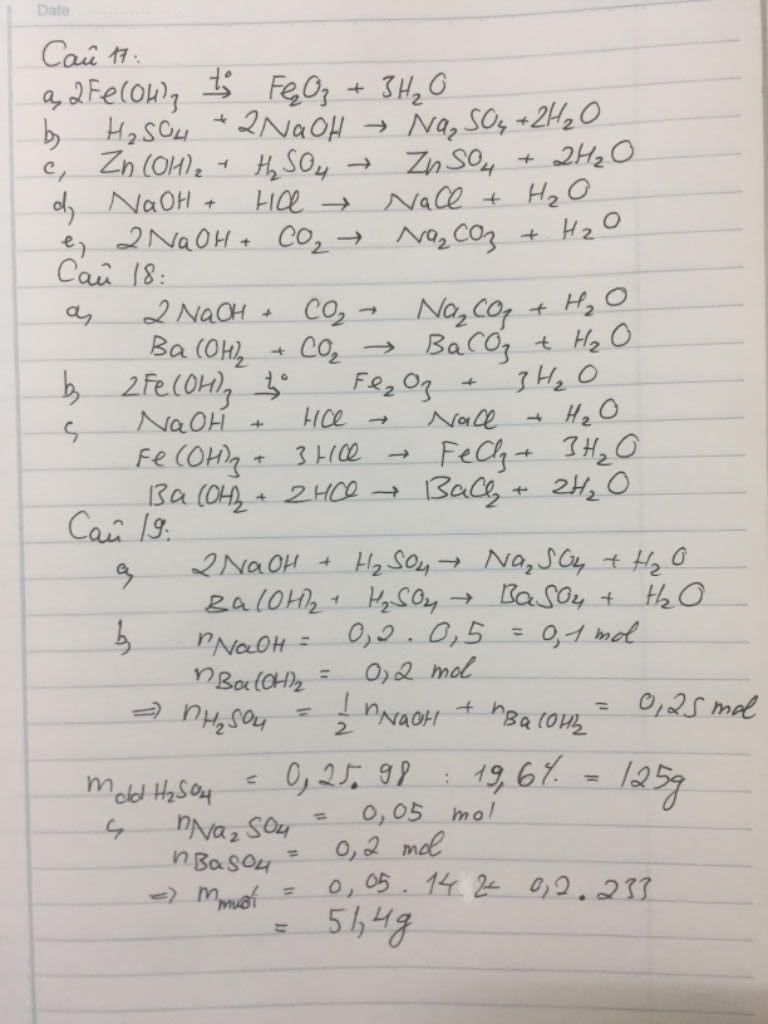 Date
Câu 17:
a, 2Fe(OH)₃ →(t°) Fe₂O₃ + 3H₂O
b, H₂SO₄ + 2NaOH → Na₂SO₄ + 2H₂O
c, Zn(OH)₂ + H₂SO₄ → ZnSO₄ + 2H₂O
d, NaOH + HCl → NaCl + H₂O
e, 2NaOH + CO₂ → Na₂CO₃ + H₂O
Câu 18:
a, 2NaOH + CO₂ → Na₂CO₃ + H₂O
Ba(OH)₂ + CO₂ → BaCO₃ + H₂O
b, 2Fe(OH)₃ →(t°) Fe₂O₃ + 3H₂O
c, NaOH + HCl → NaCl + H₂O
Fe(OH)₃ + 3HCl → FeCl₃ + 3H₂O
Ba(OH)₂ + 2HCl → BaCl₂ + 2H₂O
Câu 19:
a, 2NaOH + H₂SO₄ → Na₂SO₄ + H₂O
Ba(OH)₂ + H₂SO₄ → BaSO₄ + H₂O
b, nNaOH = 0,2 . 0,5 = 0,1 mol
nBa(OH)₂ = 0,2 mol
⇒ nH₂SO₄ = 1/2 nNaOH + nBa(OH)₂ = 0,25 mol
mdd H₂SO₄ = 0,25 . 98 : 19,6% = 125g
c, nNa₂SO₄ = 0,05 mol
nBaSO₄ = 0,2 mol
⇒ mmuối = 0,05 . 142 + 0,2 . 233
= 51,4g